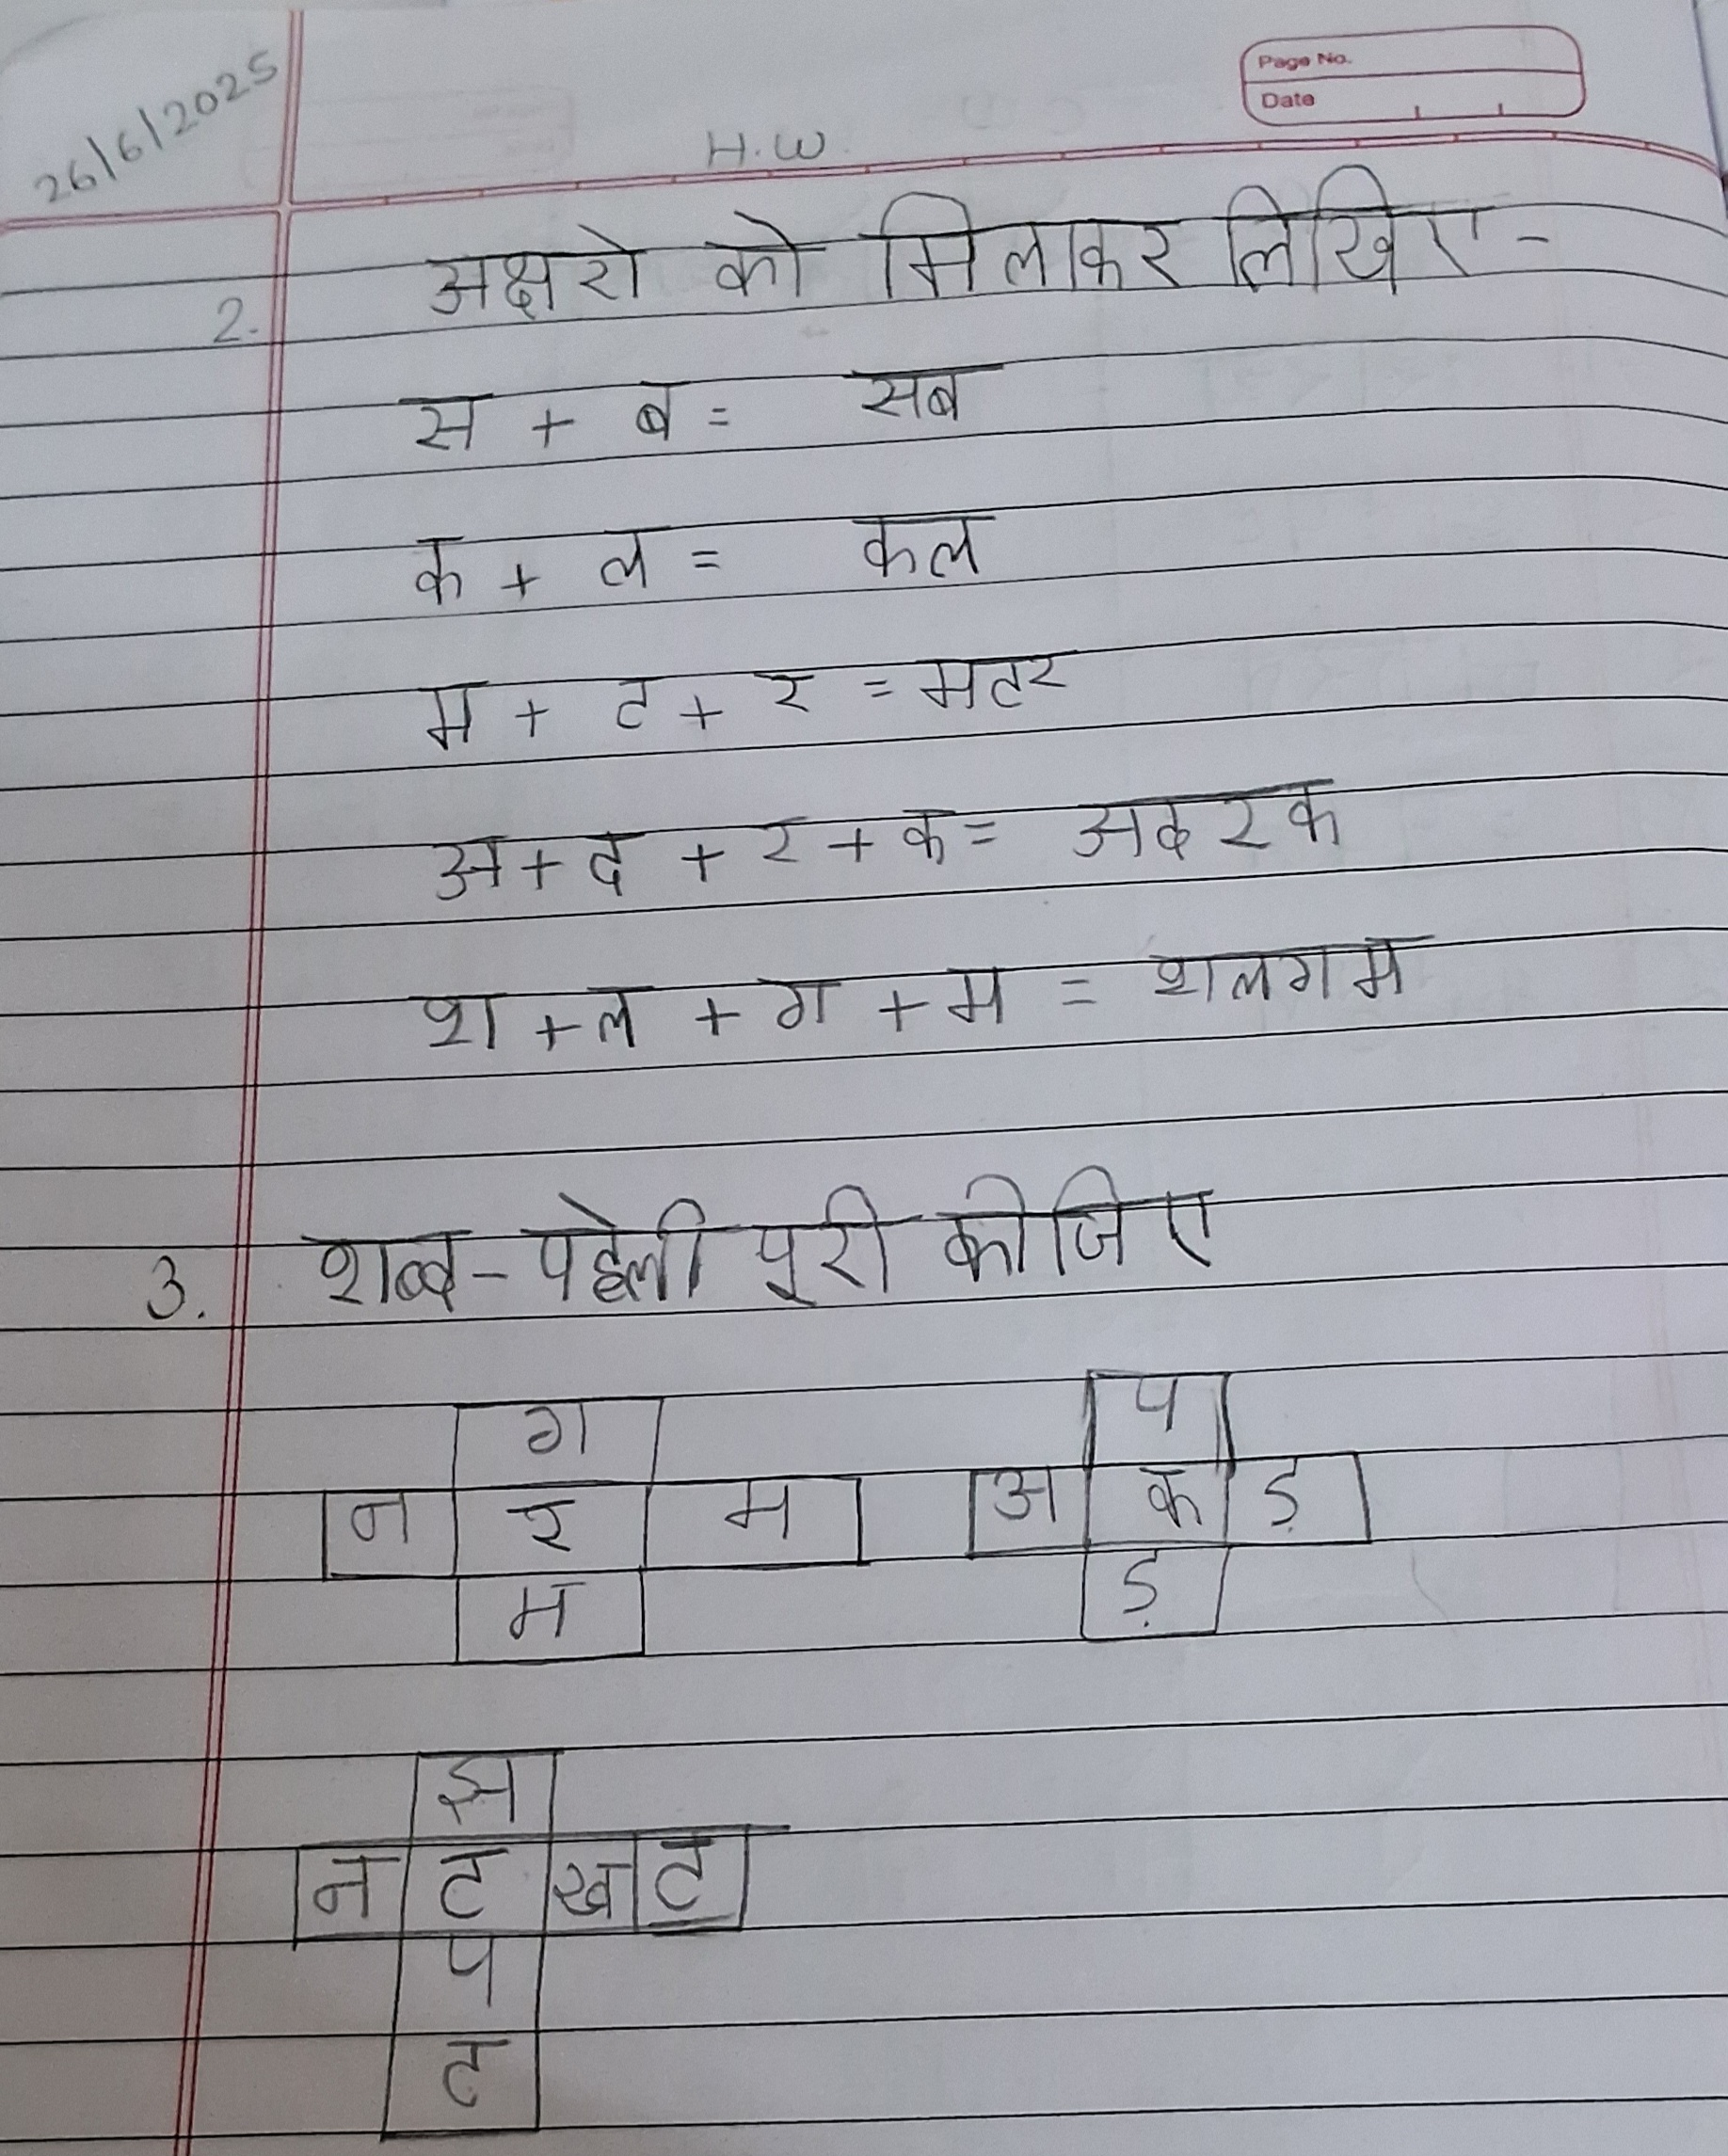 26/6/2025
Page No.
Date
H.W.
2. अक्षरो को मिलाकर लिखिए -
स + ब = सब
क + ल = कल
म + ट + र = मटर
अ + द + र + क = अदरक
श + ल + ग + म = शलगम
3. शब्द - पहेली पूरी कीजिए
ग प
न र म अ क ड़
म ड़
झ
न ट ख ट
प
ट